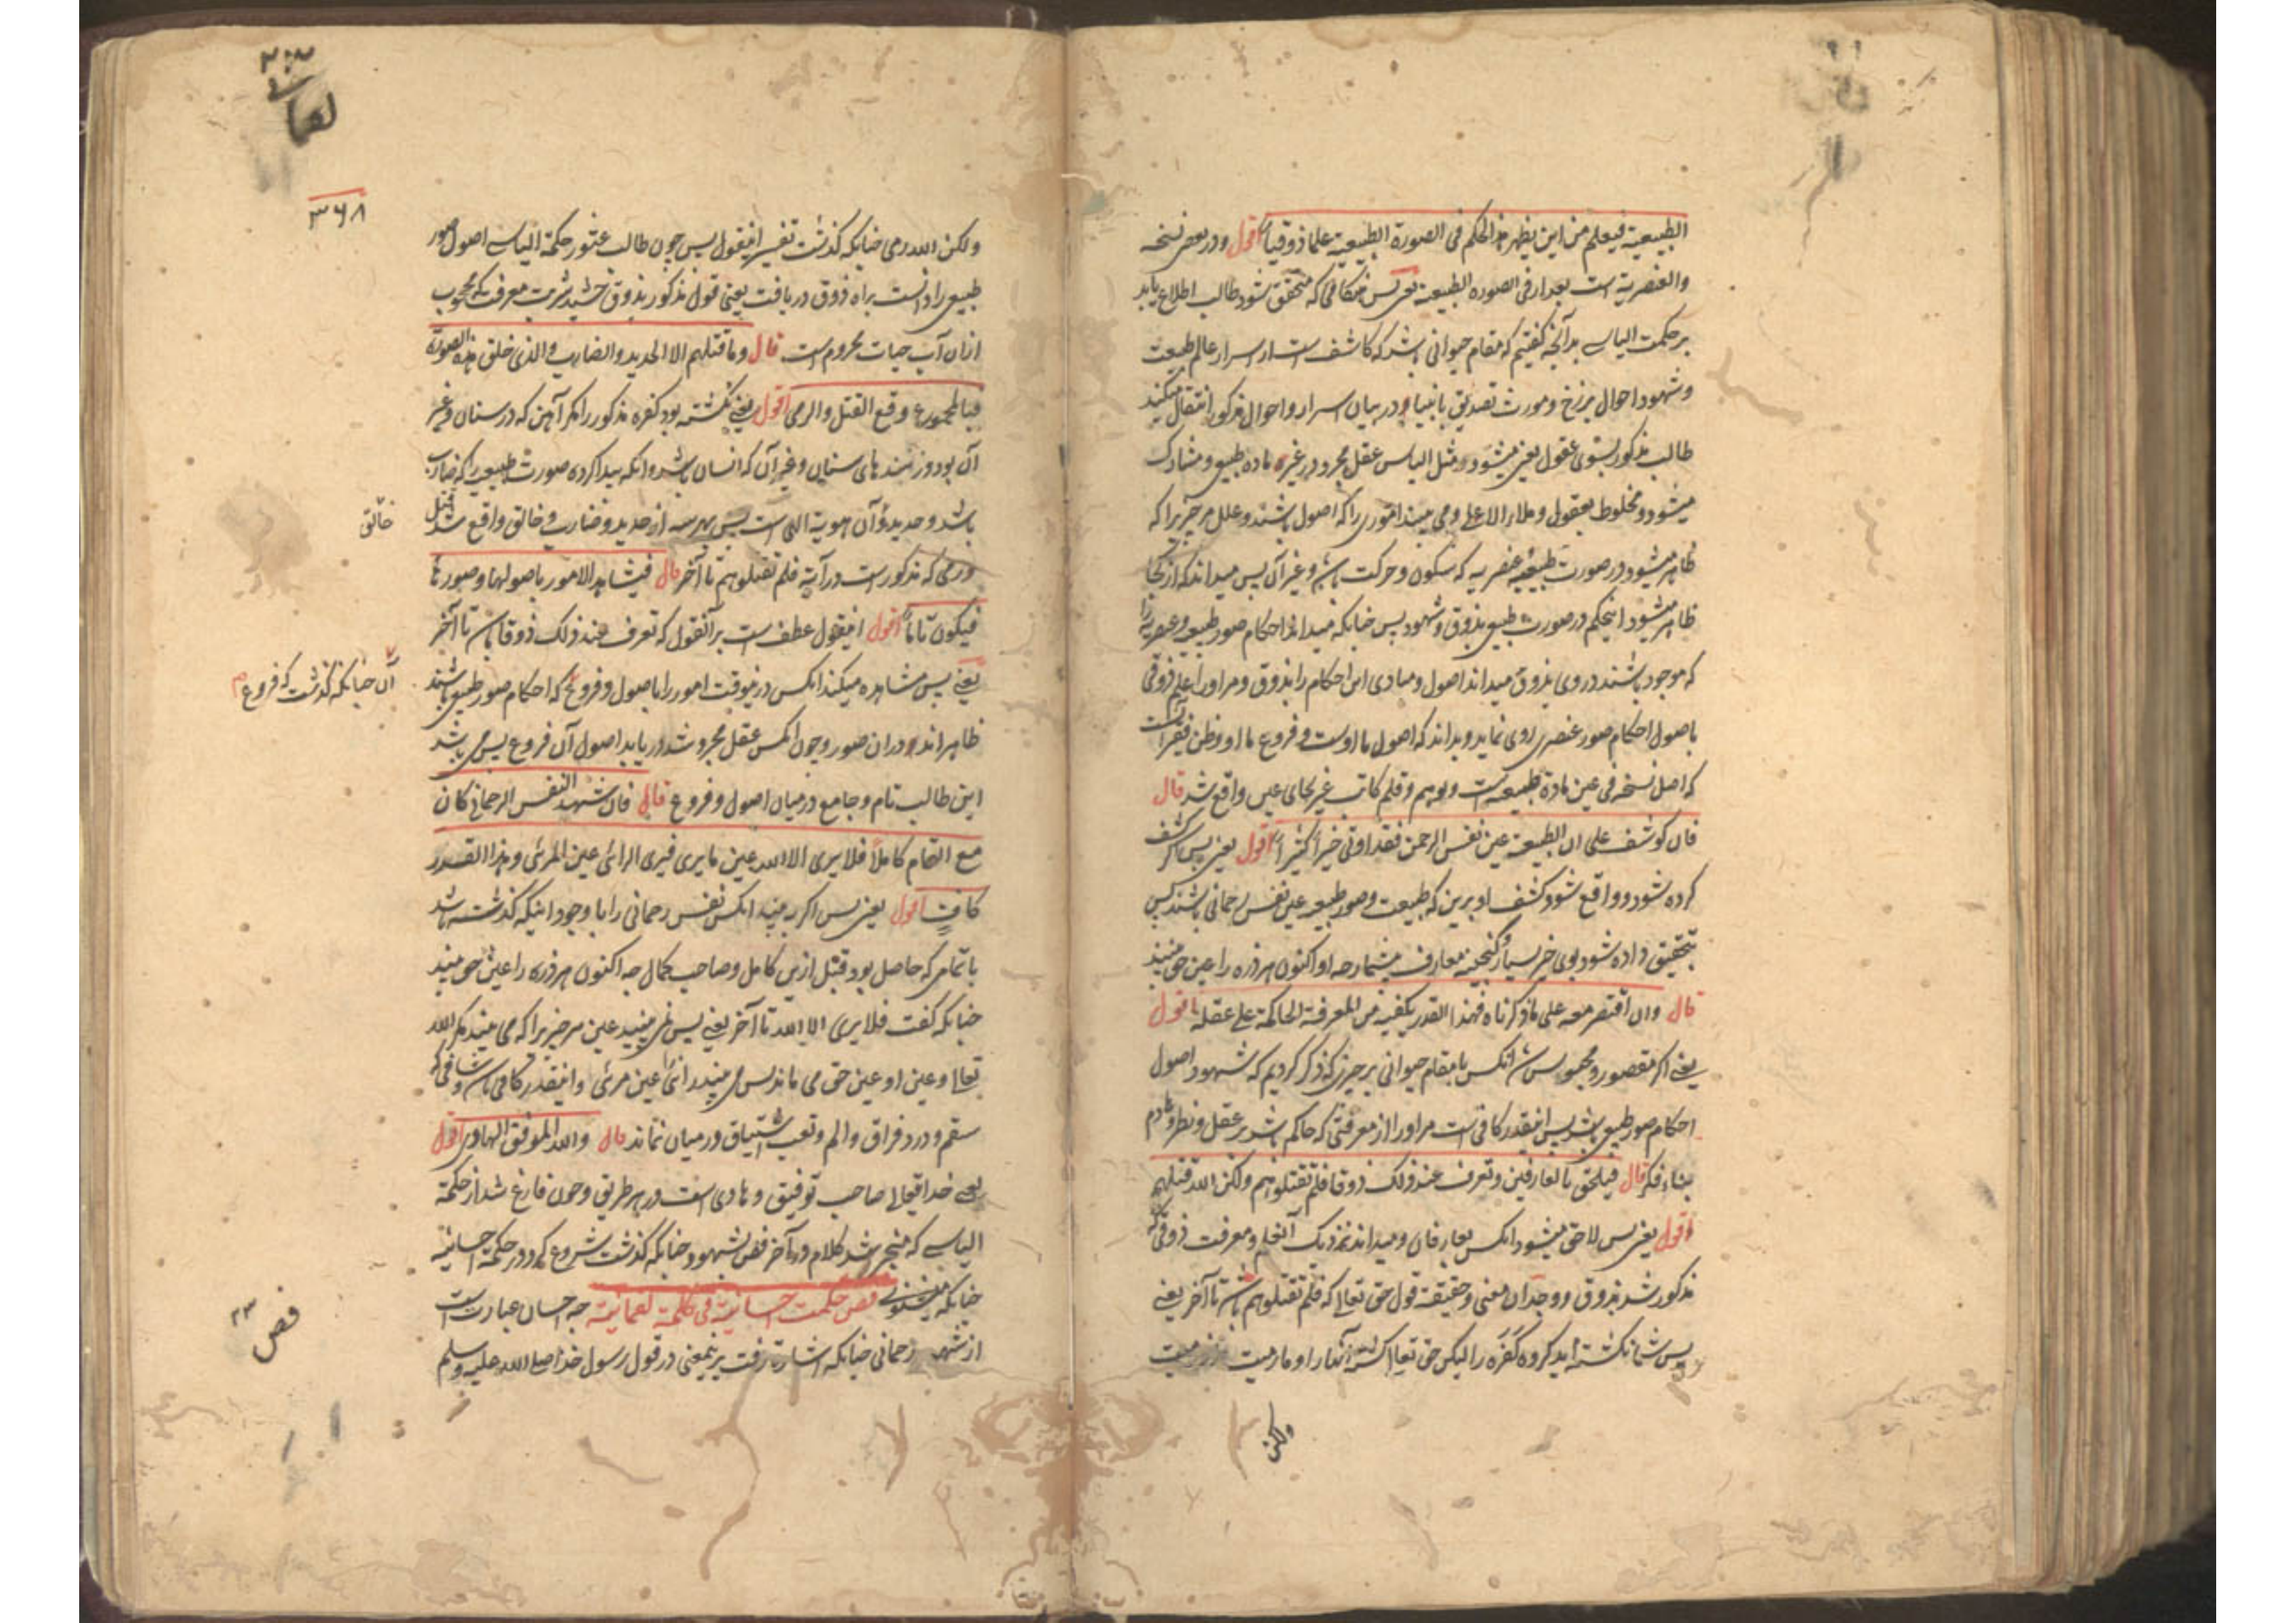 الطبیعیة فیعلم من این یظهر هذا الحکم فی الصورة الطبیعیة علما ذوقیا اقول و در بعض نسخه
والعنصریة است بعد از فی الصوره الطبیعیة یعنی پس هنگامی که متحقق شود طالب اطلاع یابد
بر حکمت الیاسی بدآنچه گفتیم که مقام حیوانی باشد که کاشف است از اسرار عالم طبیعت
و شهود احوال برزخ و مورث تصدیق بانبیا و در بیان اسرار و احوال مذکور انتقال میکند
طالب مذکور بسوی عقول یعنی میشود و مثل الیاس عقل مجرد در غیر ماده طبیعی و مشارک
میشود و مخلوط بعقول و ملاء الاعلی و می بیند اموری را که اصول باشند و علل مر چیزیرا که
ظاهر میشود در صورت طبیعیه عنصریه که سکون و حرکت باشد و غیر آن پس میداند که از کجا
ظاهر میشود اینحکم در صورت طبیعی بذوق و شهود پس چنانکه میداند احکام صور طبیعیه و عنصریه را
که موجود باشند در وی بذوق میداند اصول و مبادی این احکام را بذوق و مر او را علم ذوقی
باصول احکام صور عنصری روی نماید و بداند که اصول ما اوست و فروع ما او و ظن فقیر آنست
که اصل نسخه فی عین مادة طبیعیه است و بوهم و قلم کاتب غیر بجای عین واقع شد قال
فان کوشف علی ان الطبیعة عین نفس الرحمن فقد اوتی خیراً کثیراً اقول یعنی پس اگر کشف
کرده شود و واقع شود کشف او برین که طبیعت و صور طبیعیه عین نفس رحمانی باشند پس
بتحقیق داده شود بوی خیر بسیار و گنجینه معارف بیشمار چه او اکنون هر ذره را عین حق بیند
قال وان اقتصر معه علی ما ذکرناه فهذا القدر یکفیه من المعرفة الحاکمة علی عقله اقول
یعنی اگر مقصور و محبوس شد آنکس با مقام حیوانی بر چیزی که ذکر کردیم که شهود اصول
احکام صور طبیعی باشد پس اینقدر کافی است مر او را از معرفتی که حاکم باشد بر عقل و نظر و هادم
بناء فکر قال فیلحق بالعارفین و تعرف عند ذلک ذوقا فلم تقتلوهم ولکن الله قتلهم
اقول یعنی پس لاحق میشود آنکس بعارفان و میداند نزدیک آنعلم و معرفت ذوقی که
مذکور شد بذوق و وجدان معنی و حقیقة قول حق تعالی که فلم تقتلوهم باشد تا آخر یعنی
پس شما نکشته اید کروه کفره را لیکن حق تعالی کشت آنها را و ما رمیت اذ رمیت
ولکن
لقمان
۳۶۸
ولکن الله رمی چنانکه گذشت تفسیر اینقول پس چون طالب عثور حکمة الیاسی اصول صور
طبیعی را دانست براه ذوق دریافت یعنی قول مذکور بذوق چشید شربت معرفت که محجوب
ازان آب حیات محروم است قال وما قتلهم الا الحدید والضارب والذی خلق هذه الصورة
فبالمجموع وقع القتل والرمی اقول یعنی نکشته بود کفره مذکور را مگر آهن که در سنان و غیر
آن بود و زننده های سنان و غیر آن که انسان باشد و آنکه پیدا کرده صورت طبیعیه را که ضارب
باشد و حدید و آن هویة الهی است پس بهر سه از حدید و ضارب و خالق واقع شد قتل
خالق
و رمی که مذکور است در آیة فلم تقتلوهم تا آخر قال فیشاهد الامور باصولها وصورها
فیکون تاماً اقول اینقول عطف است بر آنقول که تعرف عند ذلک ذوقا باشد تا آخر
یعنی پس مشاهده میکند آنکس درینوقت امور را باصول و فروع که احکام صور طبیعی باشند
آن چنانکه گذشت که فروع
ظاهر اند در ان صور و چون آنکس عقل مجرد شد دریابد اصول آن فروع پس می باشد
این طالب تام و جامع درمیان اصول و فروع قال فان شهد النفس الرحمانی کان
مع التمام کاملاً فلا یری الا الله عین ما یری فیری الرائی عین المرئی وهذا القدر
کاف اقول یعنی پس اگر به بیند آنکس نفس رحمانی را با وجود اینکه گذشته باشد
با تمامی که حاصل بود قبل ازین کامل و صاحب کمال چه اکنون هر ذره را عین حق بیند
چنانکه گفت فلا یری الا الله تا آخر یعنی پس نمی بیند عین هر چیزیرا که می بیند مگر الله
تعالی و عین او عین حق می ماند پس می بیند رائی عین مرئی و اینقدر کافی باشد و شافی که
سقم و درد فراق و الم و تعب اشتیاق درمیان نماند قال والله الموفق الهادی اقول
یعنی خدایتعالی صاحب توفیق و هادی است در هر طریق و چون فارغ شد از حکمة
الیاسی که منجر شد کلام در آخر فص بشهود چنانکه گذشت شروع کرد در حکمة احسانیه
چنانکه فص حکمت احسانیة فی کلمة لقمانیة چه احسان عبارت است
فص ۲۳
از شهود رحمانی چنانکه اشارت رفت برینمعنی در قول رسول خدا صلی الله علیه وسلم